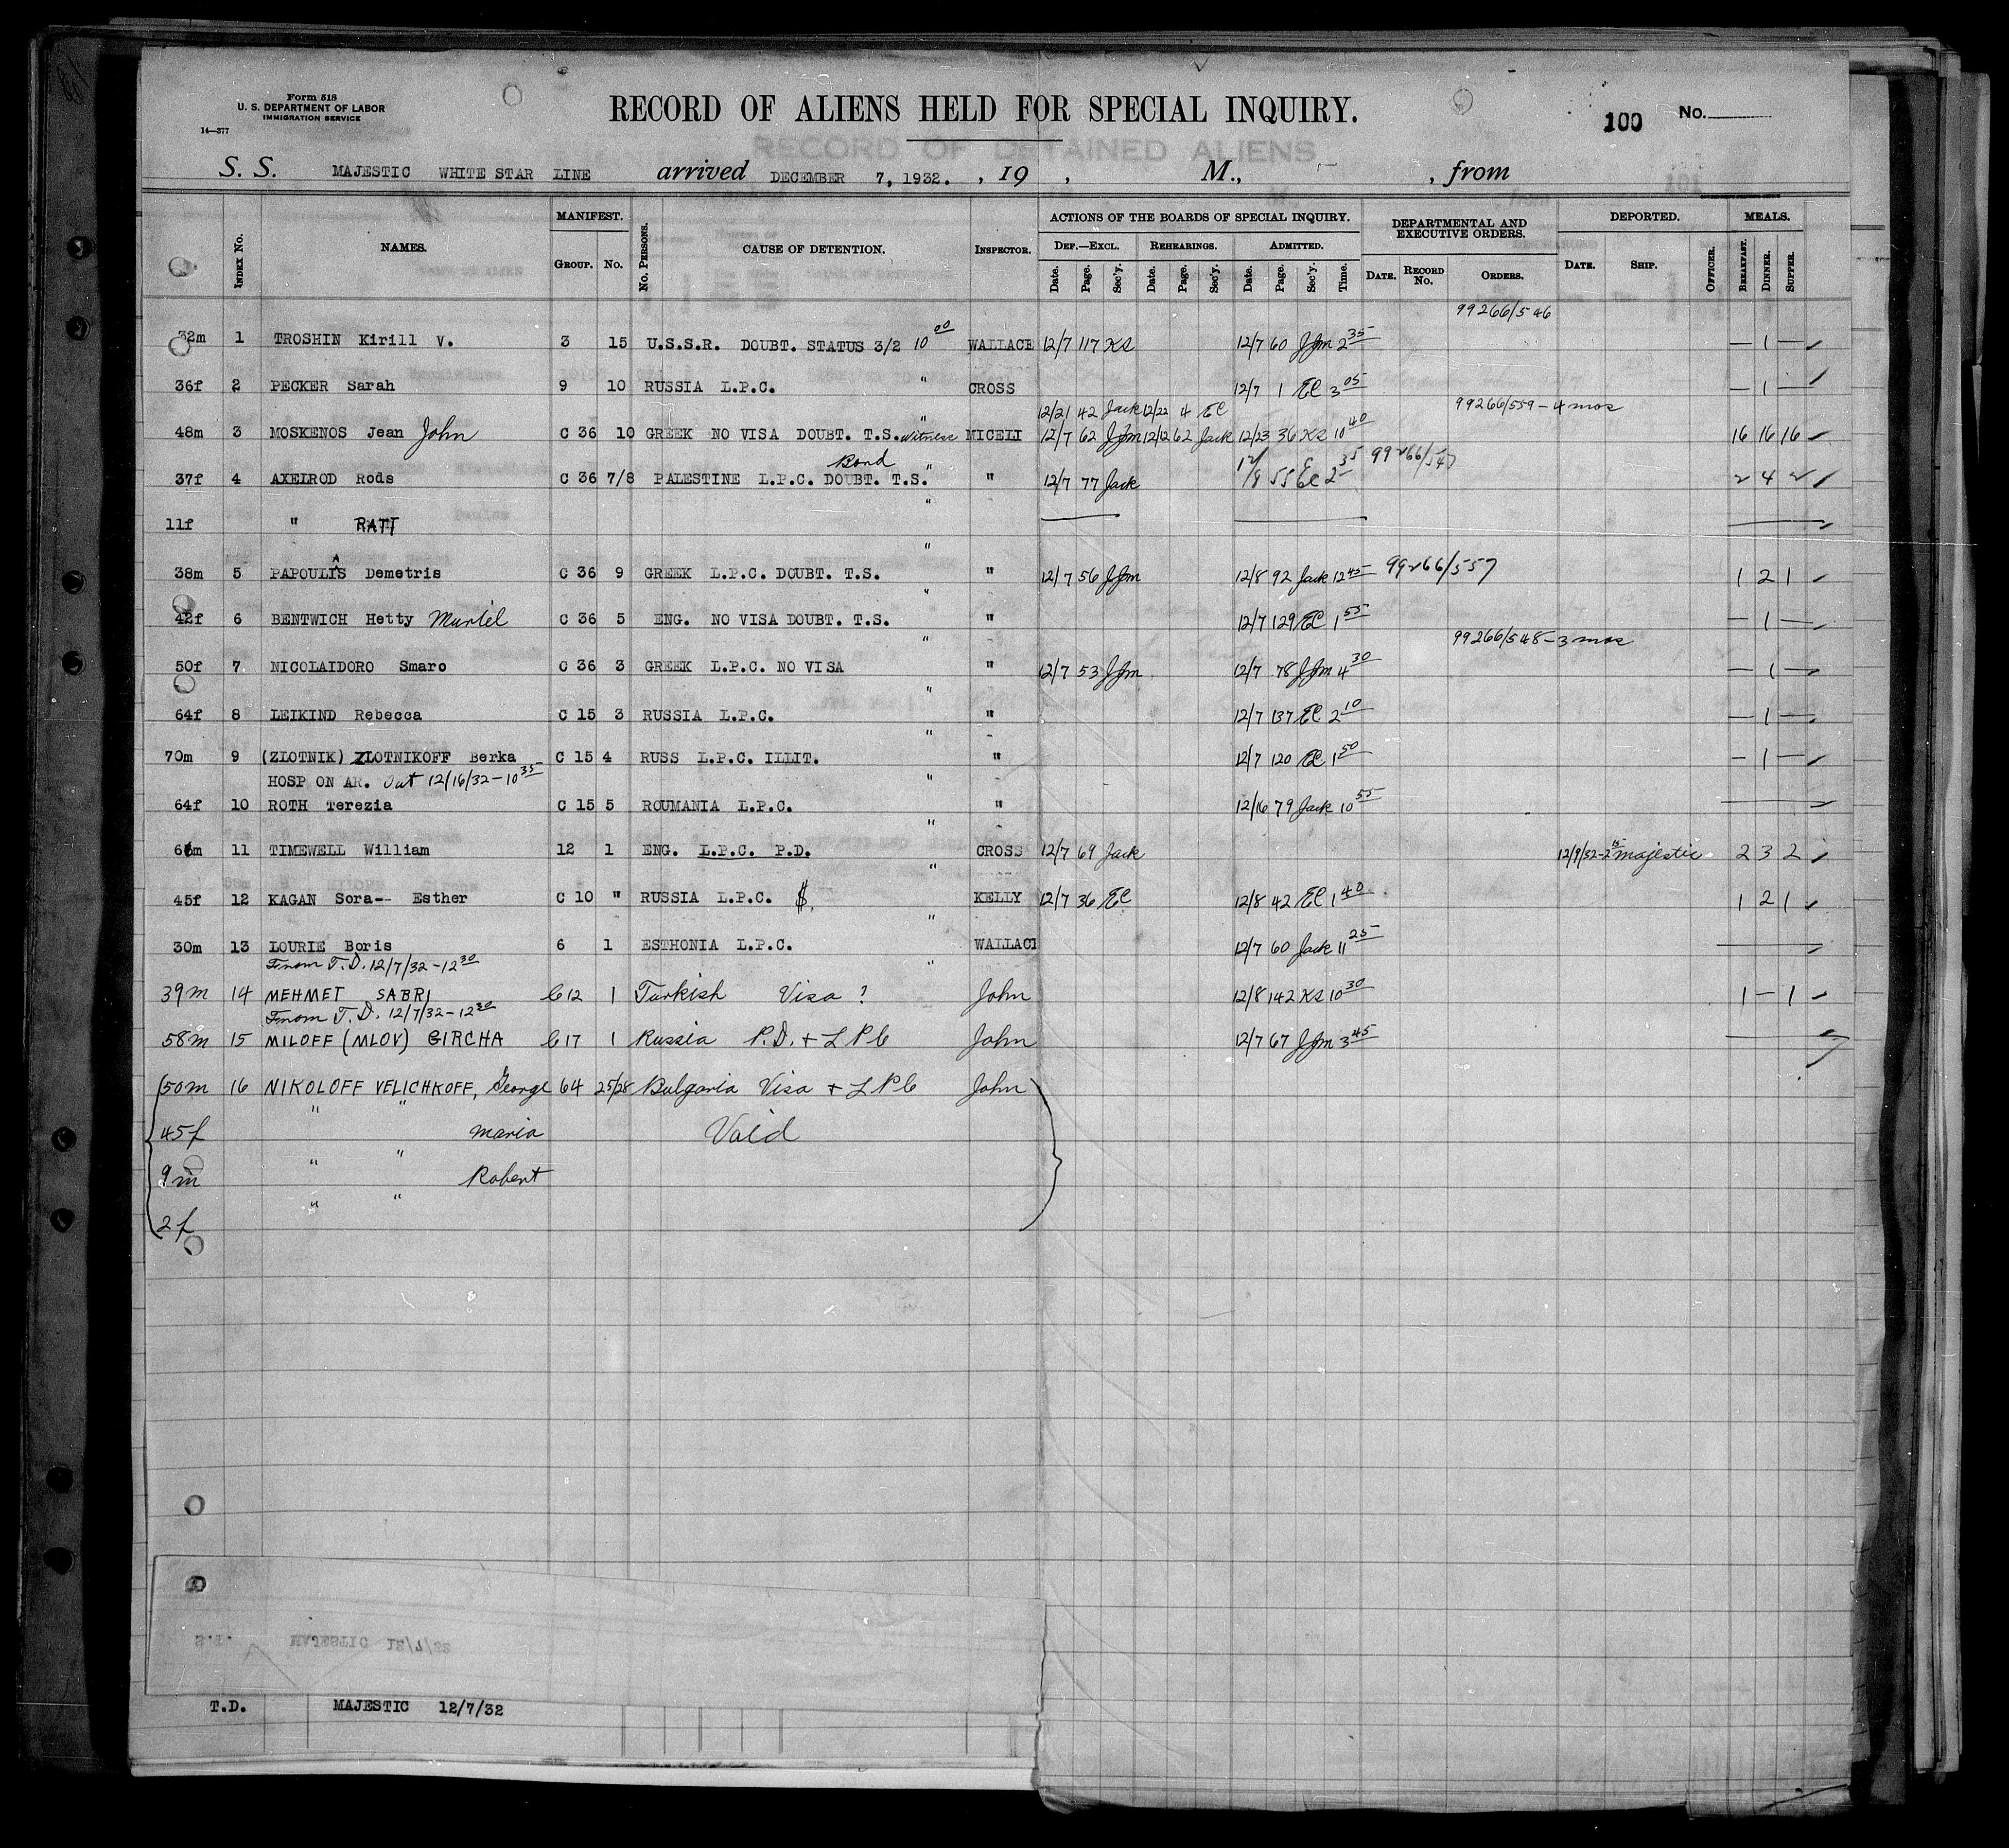 Form 518
U. S. DEPARTMENT OF LABOR
IMMIGRATION SERVICE
14—377
RECORD OF ALIENS HELD FOR SPECIAL INQUIRY.
100 No.
RECORD OF DETAINED ALIENS
S. S. MAJESTIC WHITE STAR LINE arrived DECEMBER 7, 1932. , 19 , M., , from
INDEX No. NAMES. MANIFEST. GROUP. No. No. PERSONS. CAUSE OF DETENTION. INSPECTOR. ACTIONS OF THE BOARDS OF SPECIAL INQUIRY. DEF.—EXCL. Date. Page. Sec'y. REHEARINGS. Date. Page. Sec'y. ADMITTED. Date. Page. Sec'y. Time. DEPARTMENTAL AND EXECUTIVE ORDERS. DATE. RECORD No. ORDERS. DEPORTED. DATE. SHIP. OFFICER. MEALS. BREAKFAST. DINNER. SUPPER.
99266/546
32m 1 TROSHIN Kirill V. 3 15 U.S.S.R. DOUBT. STATUS 3/2 10 00 WALLACE 12/7 117 KS 12/7 60 JJM 2 35 — 1 — ✓
36f 2 PECKER Sarah 9 10 RUSSIA L.P.C. " CROSS 12/7 1 EC 3 05 — 1 — ✓
12/21 42 Jack 12/22 4 EC 99266/559 - 4 mos
48m 3 MOSKENOS Jean John C 36 10 GREEK NO VISA DOUBT. T.S. Witness " MICELI 12/7 62 JJM 12/12 62 Jack 12/23 36 KS 10 40 16 16 16 ✓
Bond 99266/547
37f 4 AXELROD Rods C 36 7/8 PALESTINE L.P.C. DOUBT. T.S. " " 12/7 77 Jack 12/8 55 EC 2 35 2 4 2 ✓
11f " RATI "
38m 5 PAPOULIS Demetris C 36 9 GREEK L.P.C. DOUBT. T.S. " " 12/7 56 JJM 12/8 92 Jack 12 45 99266/557 1 2 1 ✓
42f 6 BENTWICH Hetty Muriel C 36 5 ENG. NO VISA DOUBT. T.S. " " 12/7 129 EC 1 55 — 1 — ✓
99266/548 - 3 mos
50f 7 NICOLAIDORO Smaro C 36 3 GREEK L.P.C. NO VISA " " 12/7 53 JJM 12/7 78 JJM 4 30 — 1 — ✓
64f 8 LEIKIND Rebecca C 15 3 RUSSIA L.P.C. " " 12/7 137 EC 2 10 — 1 — ✓
70m 9 (ZLOTNIK) ZLOTNIKOFF Berka C 15 4 RUSS L.P.C. ILLIT. " " 12/7 120 EC 1 50 — 1 — ✓
HOSP ON AR. Out 12/16/32 - 10 35
64f 10 ROTH Terezia C 15 5 ROUMANIA L.P.C. " " 12/16 79 Jack 10 55
11 TIMEWELL William 12 1 ENG. L.P.C. P.D. " CROSS 12/7 69 Jack 12/9/32 - 2 15 Majestic 2 3 2 ✓
45f 12 KAGAN Sora-- Esther C 10 " RUSSIA L.P.C. $ " KELLY 12/7 36 EC 12/8 42 EC 1 40 1 2 1 ✓
30m 13 LOURIE Boris 6 1 ESTHONIA L.P.C. " WALLACE 12/7 60 Jack 11 25
From T.D. 12/7/32 - 12 30
39m 14 MEHMET SABRI C 12 1 Turkish Visa ? John 12/8 142 KS 10 30 1 — 1 ✓
From T.D. 12/7/32 - 12 30
58m 15 MILOFF (MLOV) GIRCHA C 17 1 Russia P.D. + L P C John 12/7 67 JJM 3 45
50m 16 NIKOLOFF VELICHKOFF, George 64 25/28 Bulgaria Visa + L P C John
45f " " Maria Void
9m " " Robert
2f " "
S.I. MAJESTIC 12/7/32
T.D. MAJESTIC 12/7/32